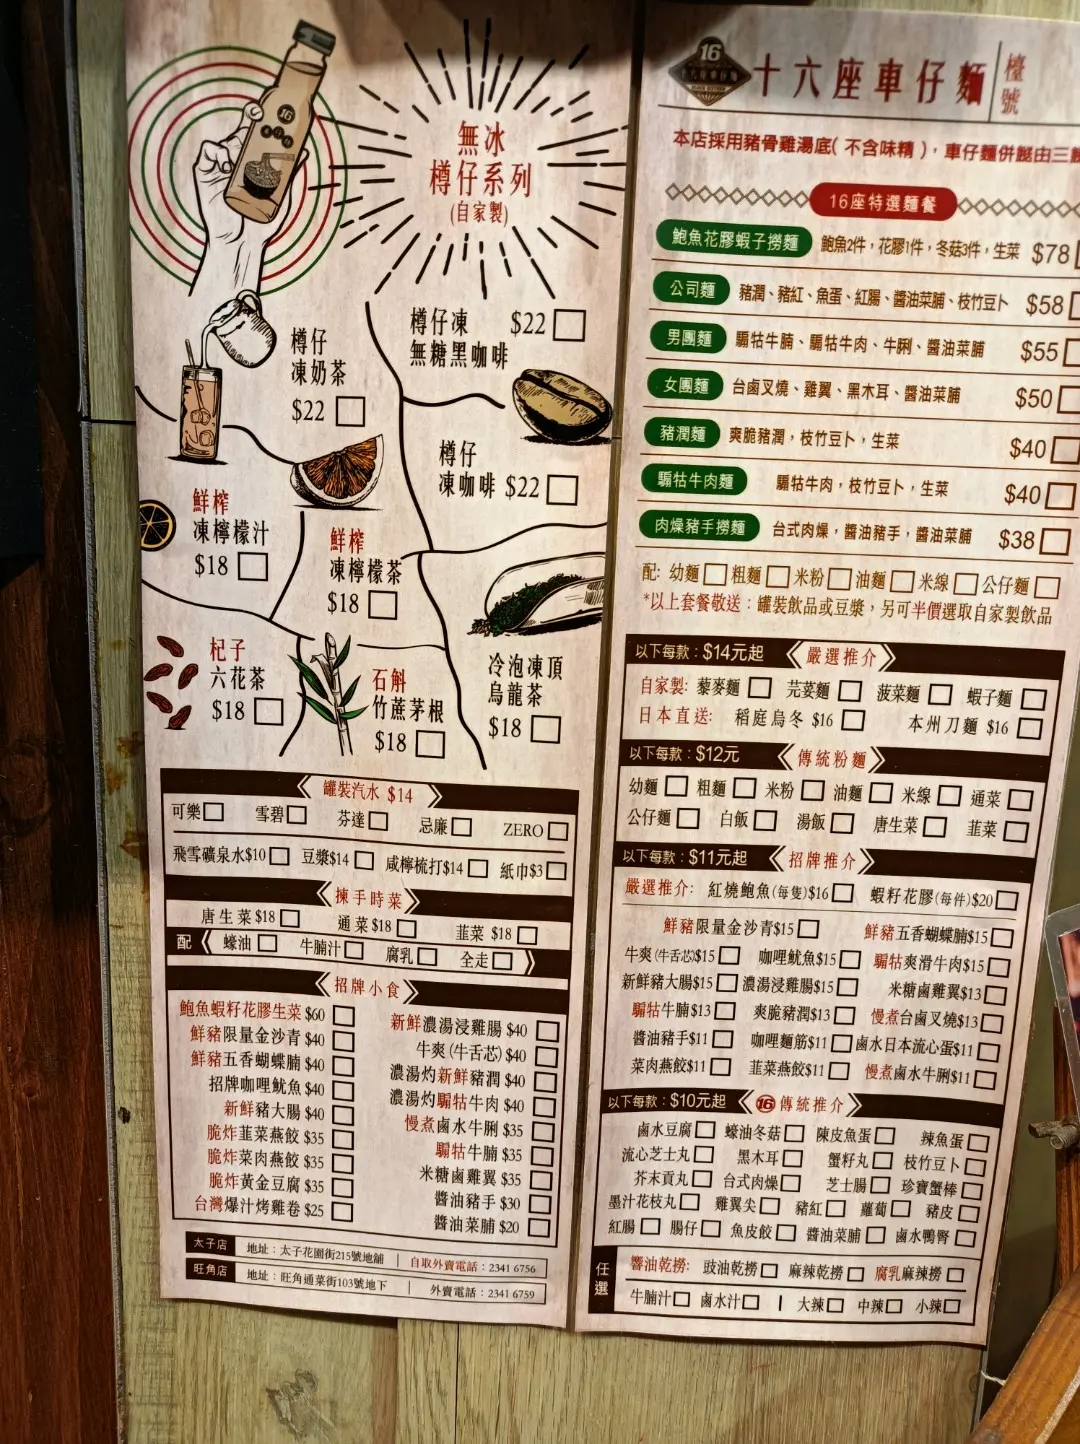 無冰
樽仔系列
(自家製)
樽仔
凍奶茶
$22
樽仔凍 $22
無糖黑咖啡
樽仔
凍咖啡 $22
鮮榨
凍檸檬汁
$18
鮮榨
凍檸檬茶
$18
杞子
六花茶
$18
石斛
竹蔗茅根
$18
冷泡凍頂
烏龍茶
$18
罐裝汽水 $14
可樂 雪碧 芬達 忌廉 ZERO
飛雪礦泉水$10 豆漿$14 咸檸梳打$14 紙巾$3
揀手時菜
唐生菜$18 通菜$18 韮菜 $18
配 蠔油 牛腩汁 腐乳 全走
招牌小食
鮑魚蝦籽花膠生菜 $60
鮮豬限量金沙青 $40
鮮豬五香蝴蝶腩 $40
招牌咖喱魷魚 $40
新鮮豬大腸 $40
脆炸韮菜燕餃 $35
脆炸菜肉燕餃 $35
脆炸黃金豆腐 $35
台灣爆汁烤雞卷 $25
新鮮濃湯浸雞腸 $40
牛爽(牛舌芯) $40
濃湯灼新鮮豬潤 $40
濃湯灼騸牯牛肉 $40
慢煮鹵水牛脷 $35
騸牯牛腩 $35
米糖鹵雞翼 $35
醬油豬手 $30
醬油菜脯 $20
太子店 地址：太子花園街215號地舖 | 自取外賣電話：2341 6756
旺角店 地址：旺角通菜街103號地下 | 外賣電話：2341 6759
16
十六座車仔麵
檯號
本店採用豬骨雞湯底(不含味精)，車仔麵併餸由三餸
16座特選麵餐
鮑魚花膠蝦子撈麵 鮑魚2件，花膠1件，冬菇3件，生菜 $78
公司麵 豬潤、豬紅、魚蛋、紅腸、醬油菜脯、枝竹豆卜 $58
男團麵 騸牯牛腩、騸牯牛肉、牛脷、醬油菜脯 $55
女團麵 台鹵叉燒、雞翼、黑木耳、醬油菜脯 $50
豬潤麵 爽脆豬潤，枝竹豆卜，生菜 $40
騸牯牛肉麵 騸牯牛肉，枝竹豆卜，生菜 $40
肉燥豬手撈麵 台式肉燥，醬油豬手，醬油菜脯 $38
配: 幼麵 粗麵 米粉 油麵 米線 公仔麵
*以上套餐敬送：罐裝飲品或豆漿，另可半價選取自家製飲品
以下每款：$14元起 嚴選推介
自家製: 藜麥麵 芫荽麵 菠菜麵 蝦子麵
日本直送: 稻庭烏冬 $16 本州刀麵 $16
以下每款：$12元 傳統粉麵
幼麵 粗麵 米粉 油麵 米線 通菜
公仔麵 白飯 湯飯 唐生菜 韮菜
以下每款：$11元起 招牌推介
嚴選推介: 紅燒鮑魚(每隻)$16 蝦籽花膠(每件)$20
鮮豬限量金沙青$15 鮮豬五香蝴蝶腩$15
牛爽(牛舌芯)$15 咖喱魷魚$15 騸牯爽滑牛肉$15
新鮮豬大腸$15 濃湯浸雞腸$15 米糖鹵雞翼$13
騸牯牛腩$13 爽脆豬潤$13 慢煮台鹵叉燒$13
醬油豬手$11 咖喱麵筋$11 鹵水日本流心蛋$11
菜肉燕餃$11 韮菜燕餃$11 慢煮鹵水牛脷$11
以下每款：$10元起 16 傳統推介
鹵水豆腐 蠔油冬菇 陳皮魚蛋 辣魚蛋
流心芝士丸 黑木耳 蟹籽丸 枝竹豆卜
芥末貢丸 台式肉燥 芝士腸 珍寶蟹棒
墨汁花枝丸 雞翼尖 豬紅 蘿蔔 豬皮
紅腸 腸仔 魚皮餃 醬油菜脯 鹵水鴨腎
任選 醬油乾撈: 豉油乾撈 麻辣乾撈 腐乳麻辣撈
牛腩汁 鹵水汁 | 大辣 中辣 小辣